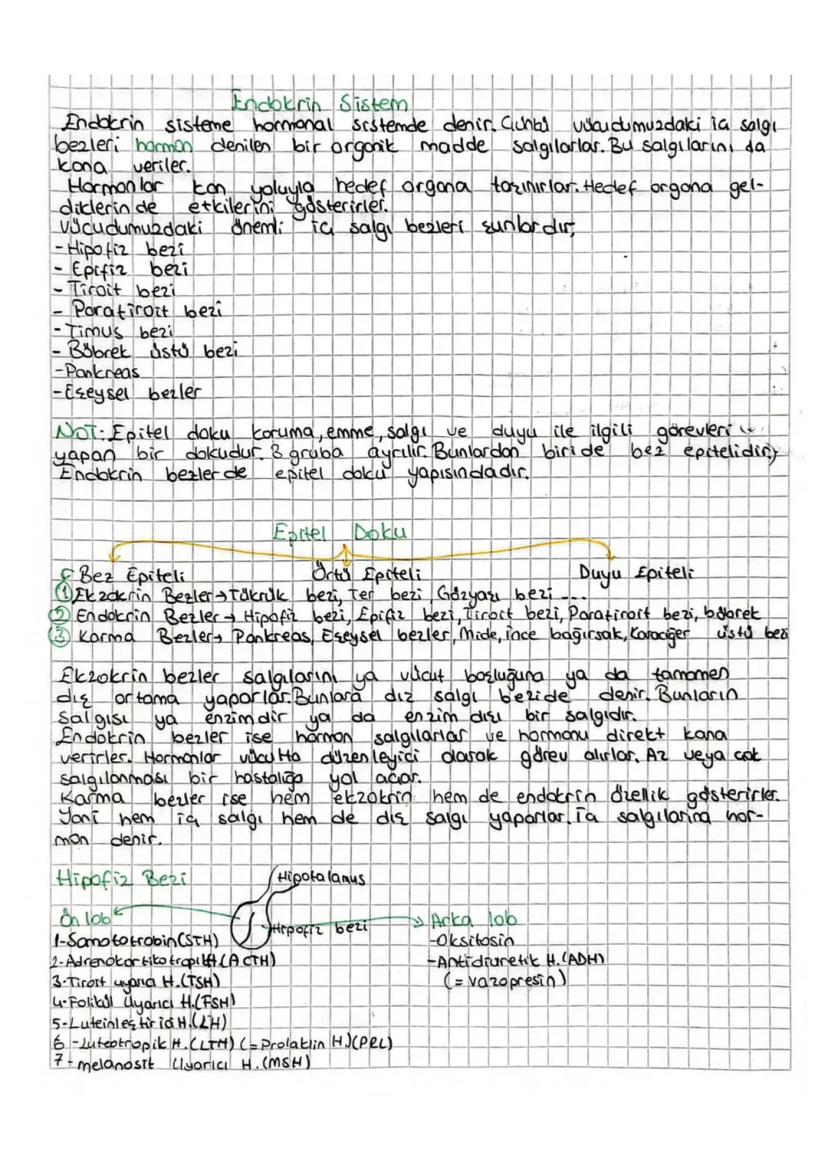 Endokrin Sistem
Endokrin sisteme hormonal sistemde denir. Çünkü vücudumuzdaki iç salgı
bezleri hormon denilen bir organik madde salgılarlar. Bu salgılarını da
kana verirler.
Hormonlar kan yoluyla hedef organa taşınırlar. Hedef organa gel-
diklerinde etkilerini gösterirler.
Vücudumuzdaki önemli iç salgı bezleri şunlardır;
- Hipofiz bezi
- Epifiz bezi
- Tiroit bezi
- Paratiroit bezi
- Timus bezi
- Böbrek üstü bezi
- Pankreas
- Eşeysel bezler
NOT: Epitel doku koruma, emme, salgı ve duyu ile ilgili görevleri
yapan bir dokudur. 3 gruba ayrılır. Bunlardan biride bez epitelidir.
Endokrin bezlerde epitel doku yapısındadır.
Epitel Doku
Bez Epiteli Örtü Epiteli Duyu Epiteli
① Ekzokrin Bezler→Tükrük bezi, Ter bezi, Gözyaşı bezi ---
② Endokrin Bezler→ Hipofiz bezi, Epifiz bezi, Tiroit bezi, Paratiroit bezi, böbrek
③ Karma Bezler→ Pankreas, Eşeysel bezler, Mide, ince bağırsak, Karaciğer üstü bezi
Ekzokrin bezler salgılarını ya vücut boşluğuna ya da tamamen
dış ortama yaparlar. Bunlara dış salgı bezide denir. Bunların
salgısı ya enzimdir ya da enzim dışı bir salgıdır.
Endokrin bezler ise hormon salgılarlar ve hormonu direkt kana
verirler. Hormonlar vücutta düzenleyici olarak görev alırlar. Az veya çok
salgılanması bir hastalığa yol açar.
Karma bezler ise hem ekzokrin hem de endokrin özellik gösterirler.
Yani hem iç salgı hem de dış salgı yaparlar. İç salgılarına hor-
mon denir.
Hipofiz Bezi
Hipotalamus
Hipofiz bezi
Ön lob
1-Somototrobin (STH)
2-Adrenokortikotropik H. (ACTH)
3-Tiroit uyarıcı H. (TSH)
4-Folikül Uyarıcı H. (FSH)
5-Luteinleştirici H. (LH)
6-Luteotropik H. (LTH) (=Prolaktin H.) (PRL)
7-melanosit Uyarıcı H. (MSH)
Arka lob
-Oksitosin
-Antidiuretik H. (ADH)
(=vazopresin)